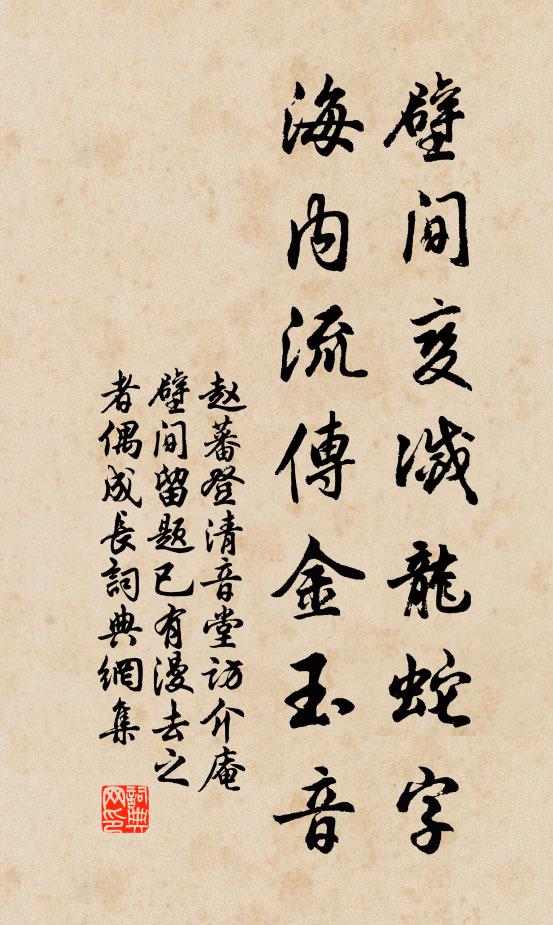 壁間变滅龍蛇字
海内流傳金玉音
赵蕃登清音堂訪介庵
壁间留题已有漫去之
者偶成長詞典網集
詞典网印